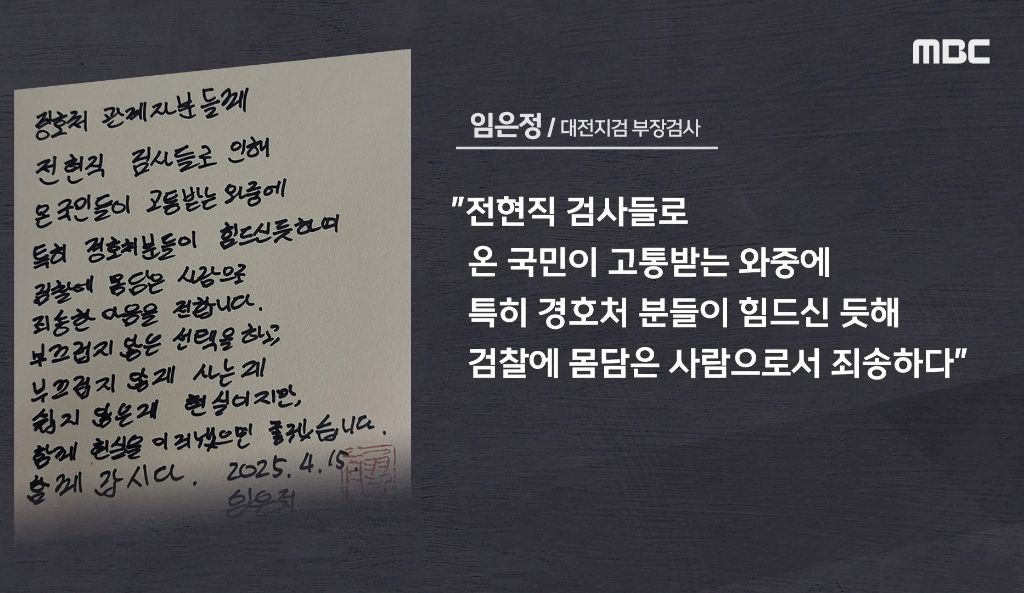 경호처 관계자분들께
전현직 검사들로 인해
온 국민들이 고통받는 와중에
특히 경호처분들이 힘드신듯하여
검찰에 몸담은 사람으로
죄송한 마음을 전합니다.
부끄럽지 않는 선택을 하고,
부끄럽지 않게 사는게
쉽지 않은게 현실이지만,
함께 현실을 이겨냈으면 좋겠습니다.
함께 갑시다. 2025.4.15.
임은정
MBC
임은정 / 대전지검 부장검사
"전현직 검사들로
온 국민이 고통받는 와중에
특히 경호처 분들이 힘드신 듯해
검찰에 몸담은 사람으로서 죄송하다"